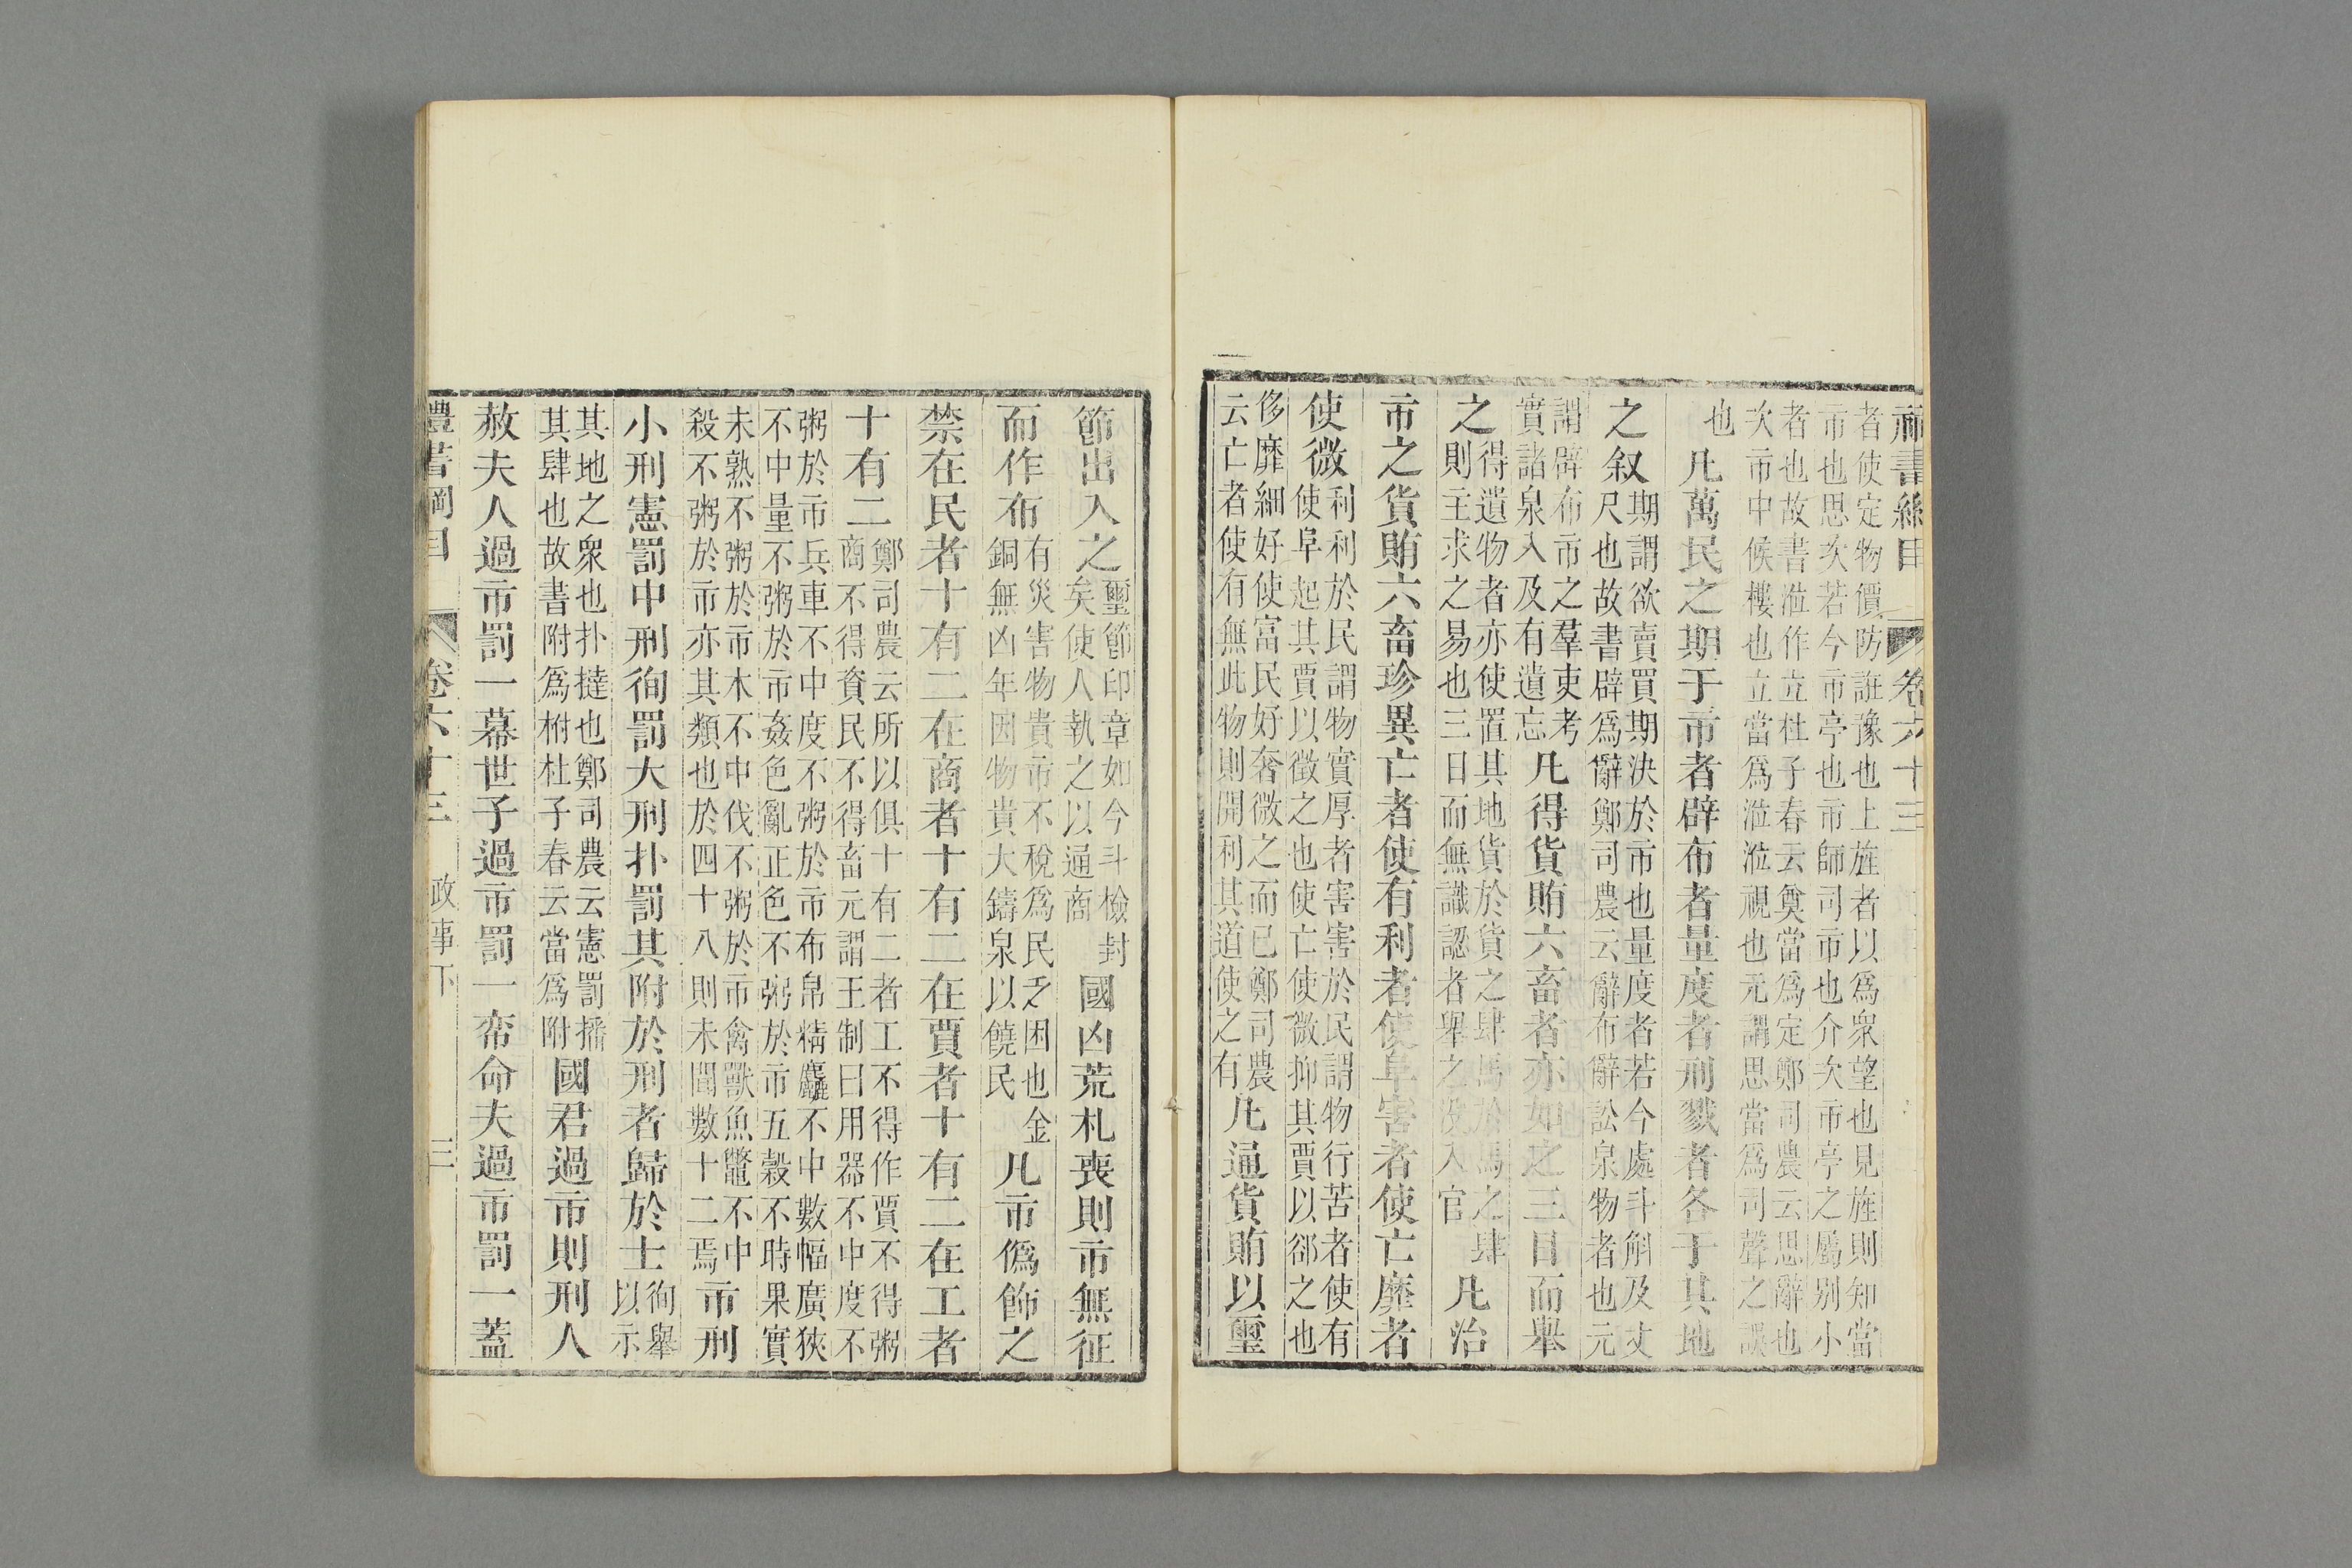 卷六十三
者使定物價防誑豫也上旌者以爲衆望也見旌則知當
市也思次若今市亭也市師司市也介次市亭之屬別小
者也故書涖作立杜子春云奠當爲定鄭司農云思辭也
次市中候樓也立當爲涖涖視也元謂思當爲司聲之誤
也凡萬民之期于市者辟布者量度者刑戮者各于其地
之叙期謂欲賣買期決於市也量度者若今處斗斛及丈
尺也故書辟爲辭鄭司農云辭布辭訟泉物者也元
謂辟布市之羣吏考
實諸泉入及有遺忘凡得貨賄六畜者亦如之三日而舉
之得遺物者亦使置其地貨於貨之肆馬於馬之肆
則主求之易也三日而無識認者舉之沒入官凡治
市之貨賄六畜珍異亡者使有利者使阜害者使亡靡者
使微利利於民謂物實厚者害害於民謂物行苦者使有
使阜起其賈以徵之也使亡使微抑其賈以郤之也
侈靡細好使富民好奢微之而已鄭司農
云亡者使有無此物則開利其道使之有凡通貨賄以璽
節出入之璽節印章如今斗檢封
矣使人執之以通商國凶荒札喪則市無征
而作布有災害物貴市不稅爲民乏困也金
銅無凶年因物貴大鑄泉以饒民凡市僞飾之
禁在民者十有二在商者十有二在賈者十有二在工者
十有二鄭司農云所以俱十有二者工不得作賈不得粥
商不得資民不得畜元謂王制曰用器不中度不
粥於市兵車不中度不粥於市布帛精麤不中數幅廣狹
不中量不粥於市姦色亂正色不粥於市五穀不時果實
未熟不粥於市木不中伐不粥於市禽獸魚鼈不中
殺不粥於市亦其類也於四十八則未聞數十二焉市刑
小刑憲罰中刑徇罰大刑扑罰其附於刑者歸於士徇舉
以示
其地之衆也扑撻也鄭司農云憲罰播
其肆也故書附爲柎杜子春云當爲附國君過市則刑人
赦夫人過市罰一幕世子過市罰一帟命夫過市罰一蓋
禮書綱目 卷六十三 政事下 三